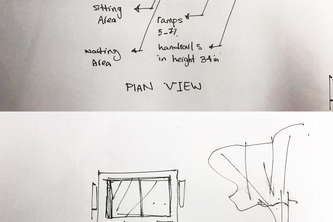 sitting
Area
ramps
5-7%
waiting
Area
handrails
in height 34in
PLAN VIEW